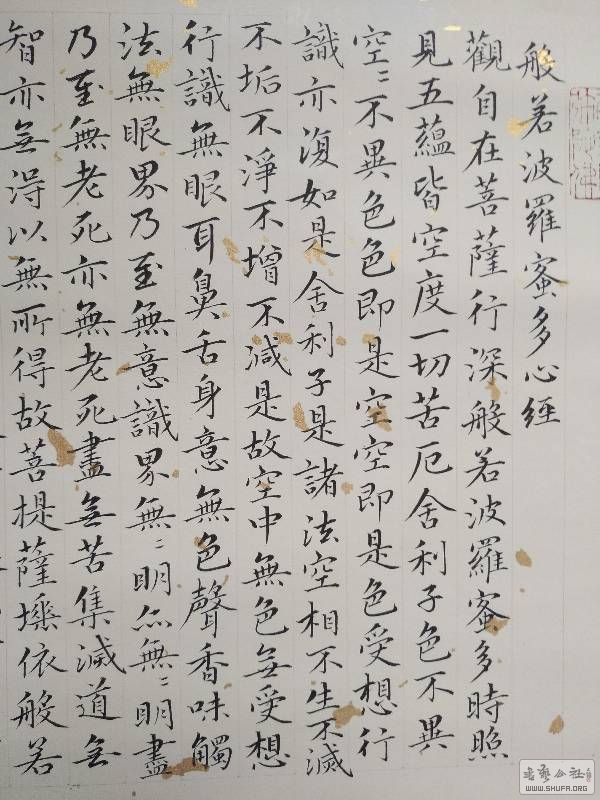 般若波羅蜜多心經
觀自在菩薩行深般若波羅蜜多時照
見五蘊皆空度一切苦厄舍利子色不異
空〻不異色色即是空空即是色受想行
識亦復如是舍利子是諸法空相不生不滅
不垢不淨不增不減是故空中無色無受想
行識無眼耳鼻舌身意無色聲香味觸
法無眼界乃至無意識界無〻明亦無〻明盡
乃至無老死亦無老死盡無苦集滅道無
智亦無得以無所得故菩提薩埵依般若
書藝公社
WWW.SHUFA.ORG